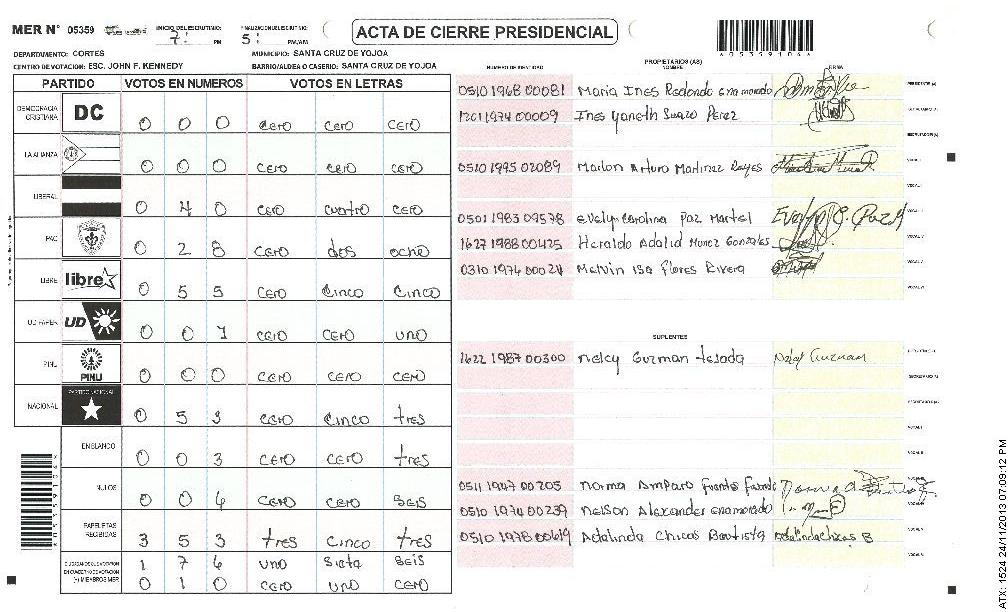 MER N° 05359 INICIO DEL ESCRUTINIO: 7: PM FINALIZACION DEL ESCRUTINIO: 5: PM/AM ACTA DE CIERRE PRESIDENCIAL
A05359106A
DEPARTAMENTO: CORTES MUNICIPIO: SANTA CRUZ DE YOJOA
CENTRO DE VOTACION: ESC. JOHN F. KENNEDY BARRIO/ALDEA O CASERIO: SANTA CRUZ DE YOJOA
PARTIDO VOTOS EN NUMEROS VOTOS EN LETRAS
DEMOCRACIA CRISTIANA DC 0 0 0 cero cero cero
LA ALIANZA 0 0 0 cero cero cero
LIBERAL 0 4 0 cero cuatro cero
PAC 0 2 8 cero dos ocho
LIBRE libre 0 5 5 cero cinco cinco
UD FAPER UD 0 0 1 cero cero uno
PINU PINU 0 0 0 cero cero cero
NACIONAL PARTIDO NACIONAL 0 5 3 cero cinco tres
EN BLANCO 0 0 3 cero cero tres
NULOS 0 0 6 cero cero seis
PAPELETAS RECIBIDAS 3 5 3 tres cinco tres
CIUDADANOS QUE VOTARON EN CUADERNO DE VOTACION 1 7 6 uno siete seis
(+) MIEMBROS MER 0 1 0 cero uno cero
NUMERO DE IDENTIDAD PROPIETARIOS (AS) NOMBRE FIRMA
0510 1968 00081 Maria Ines Redondo enamorado PRESIDENTE (A)
1201 1974 00009 Ines Yaneth Suazo Perez SECRETARIO (A)
ESCRUTADOR (A)
0510 1995 02089 Marlon Arturo Martinez Reyes VOCAL I
VOCAL II
0501 1983 09578 Evelyn Carolina Paz Martel VOCAL III
1627 1988 00425 Heraldo Adalid Munoz Gonzales VOCAL IV
0310 1974 00024 Melvin Isa Flores Rivera VOCAL V
VOCAL VI
SUPLENTES
1622 1987 00300 Nelcy Guzman tesada Nelcy Guzman PRESIDENTE (A)
SECRETARIO (A)
ESCRUTADOR (A)
VOCAL I
VOCAL II
0511 1947 00205 Norma Amparo Funes Funes
0510 1974 00239 Nelson Alexander enamorado
0510 1978 00619 Adalinda Chicas Bautista Adalinda Chicas B
VOCAL VI
ATX: 1524 24/11/2013 07:09:12 PM